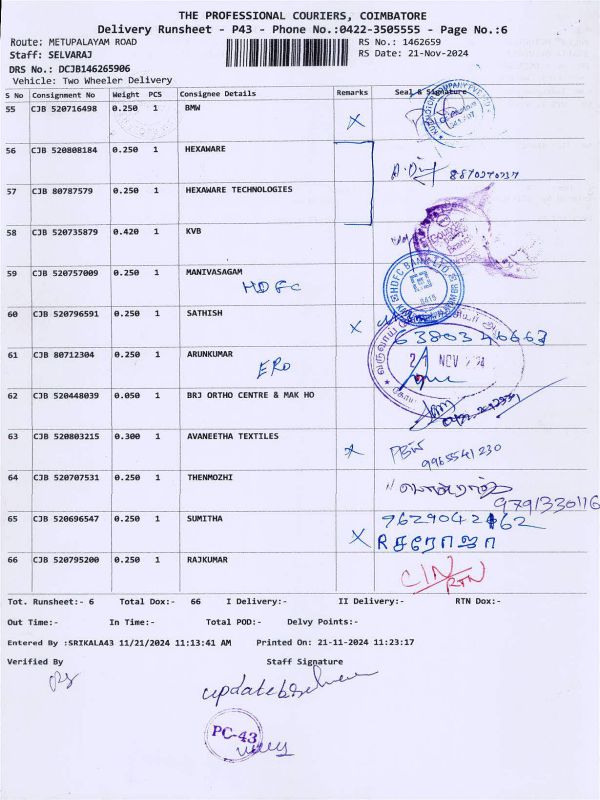 THE PROFESSIONAL COURIERS, COIMBATORE
Delivery Runsheet - P43 - Phone No.:0422-3505555 - Page No.:6
Route: METUPALAYAM ROAD RS No.: 1462659
Staff: SELVARAJ RS Date: 21-Nov-2024
DRS No.: DCJB146265906
Vehicle: Two Wheeler Delivery
S No Consignment No Weight PCS Consignee Details Remarks Seal & Signature
55 CJB 520716498 0.250 1 BMW X
56 CJB 520808184 0.250 1 HEXAWARE
57 CJB 80787579 0.250 1 HEXAWARE TECHNOLOGIES
58 CJB 520735879 0.420 1 KVB
59 CJB 520757009 0.250 1 MANIVASAGAM
HDFC
HDFC BANK LTD
60 CJB 520796591 0.250 1 SATHISH X
61 CJB 80712304 0.250 1 ARUNKUMAR
21 NOV
62 CJB 520448039 0.050 1 BRJ ORTHO CENTRE & MAK HO
63 CJB 520803215 0.300 1 AVANEETHA TEXTILES
9965541230
64 CJB 520707531 0.250 1 THENMOZHI
9791330116
65 CJB 520696547 0.250 1 SUMITHA X
R சரோஜா
66 CJB 520795200 0.250 1 RAJKUMAR
RTN
Tot. Runsheet:- 6 Total Dox:- 66 I Delivery:- II Delivery:- RTN Dox:-
Out Time:- In Time:- Total POD:- Delvy Points:-
Entered By :SRIKALA43 11/21/2024 11:13:41 AM Printed On: 21-11-2024 11:23:17
Verified By Staff Signature
PC-43